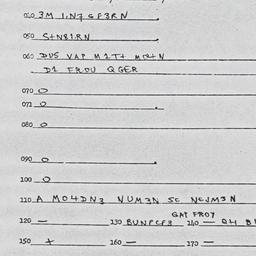 040 3M 1.N7 GF3RN
050 S+N81.RN
060 DUS VAP M2T+ MR+N
D1 FROU QGER
070 O
072 O
080 O
090 O
100 O
110 A MO4DN3 NUM3N SC NEJM3N
GAT FROY
120 — 130 BUNPCF3 140 — 04
150 + 160 — 170 —